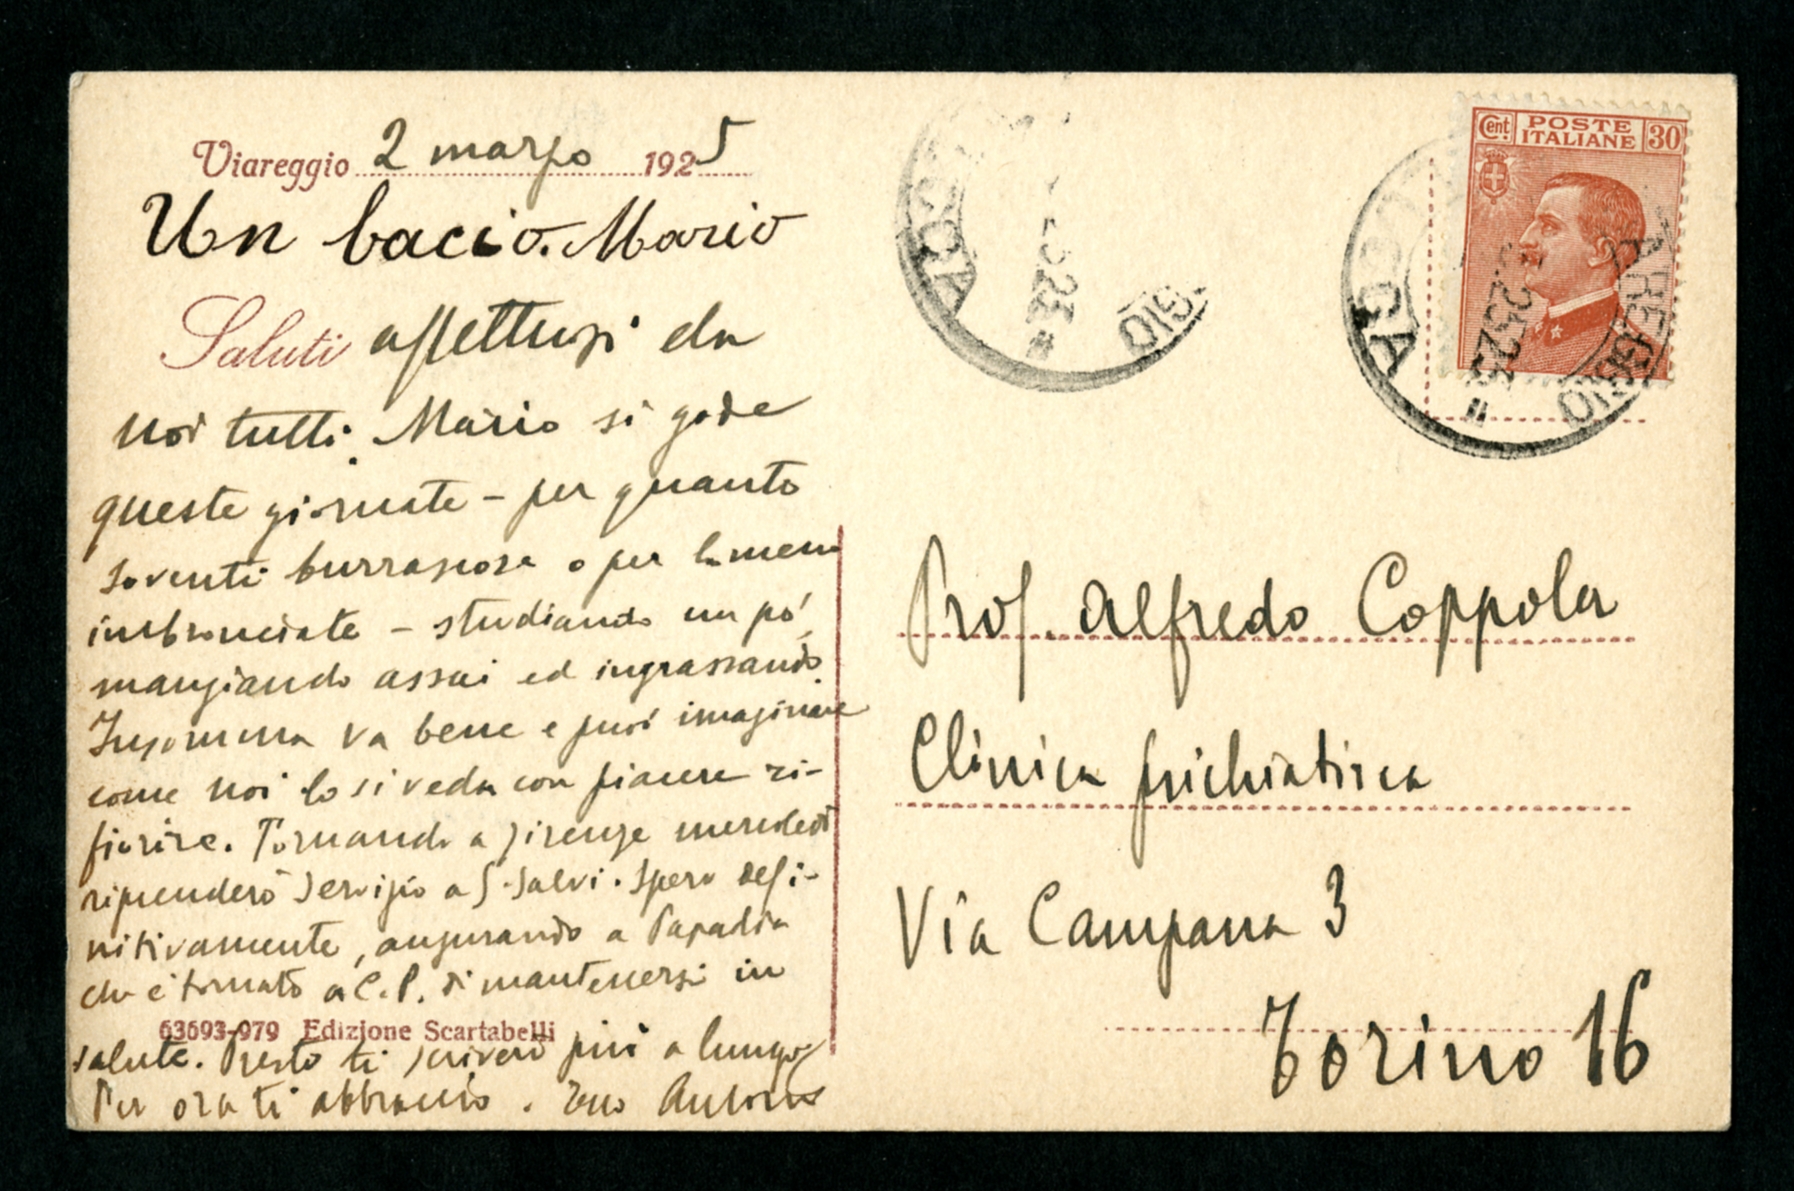 Viareggio 2 marzo 1925
Un bacio. Mario
Saluti affettuosi da
noi tutti. Mario si gode
queste giornate - per quanto
soventi burrascose o per lo meno
imbronciate - studiando un pò,
mangiando assai ed ingrassando.
Insomma va bene e puoi imaginare
come noi lo si veda con piacere ri-
fiorire. Tornando a Firenze mercoledì
riprenderò servizio a S. Salvi. Spero defi-
nitivamente, augurando a Papadia
che è tornato a C.P. di mantenersi in
salute. Presto ti scriverò più a lungo.
Per ora ti abbraccio. Tuo Antonio
63693-979 Edizione Scartabelli
Cent. POSTE ITALIANE 30
Prof. Alfredo Coppola
Clinica psichiatrica
Via Campana 3
Torino 16